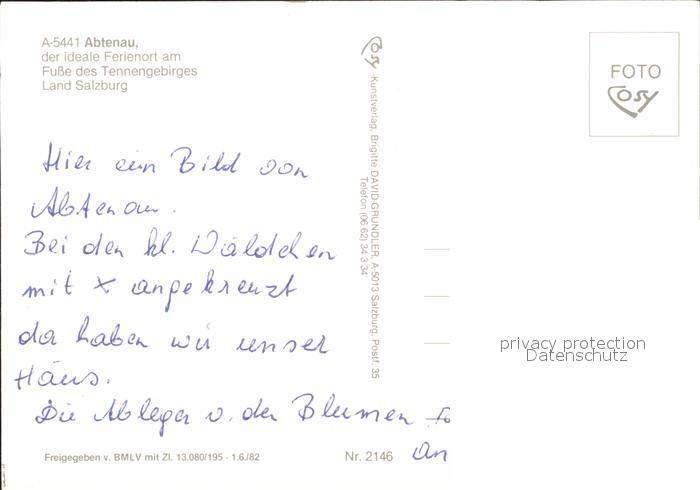 A-5441 Abtenau,
der ideale Ferienort am
Fuße des Tennengebirges
Land Salzburg
Hier ein Bild von
Abtenau.
Bei den kl. Wäldchen
mit x angekreuzt
da haben wir unser
Haus.
Die Ableger v. den Blumen
an
Freigegeben v. BMLV mit Zl. 13.080/195 - 1.6./82
Nr. 2146
Cosy -Kunstverlag, Brigitte DAVID-GRÜNDLER, A-5013 Salzburg, Postf. 35
Telefon (06 62) 34 3 34
FOTO
Cosy
privacy protection
Datenschutz